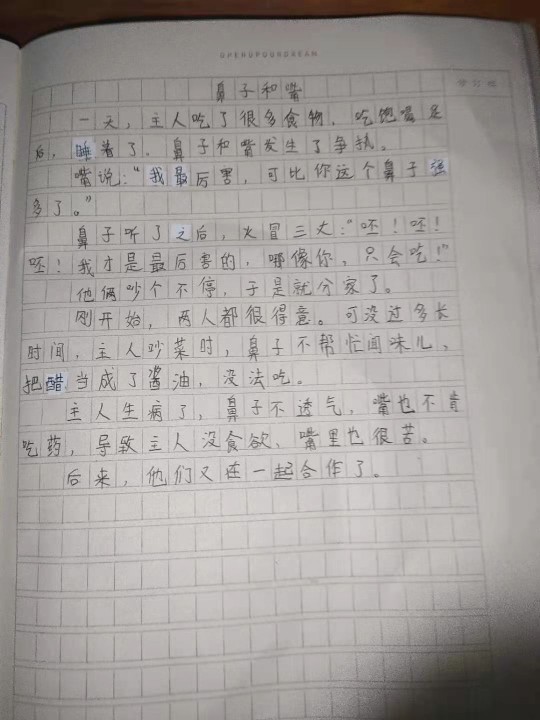 UPENDUPOURDREAM
鼻子和嘴
一天，主人吃了很多食物，吃饱喝足
后，睡着了。鼻子和嘴发生了争执。
嘴说：“我最厉害，可比你这个鼻子强
多了。”
鼻子听了之后，火冒三丈：“呸！呸！
呸！我才是最厉害的，哪像你，只会吃！”
他俩吵个不停，于是就分家了。
刚开始，两人都很得意。可没过多长
时间，主人炒菜时，鼻子不帮忙闻味儿，
把醋当成了酱油，没法吃。
主人生病了，鼻子不透气，嘴也不肯
吃药，导致主人没食欲、嘴里也很苦。
后来，他们又在一起合作了。